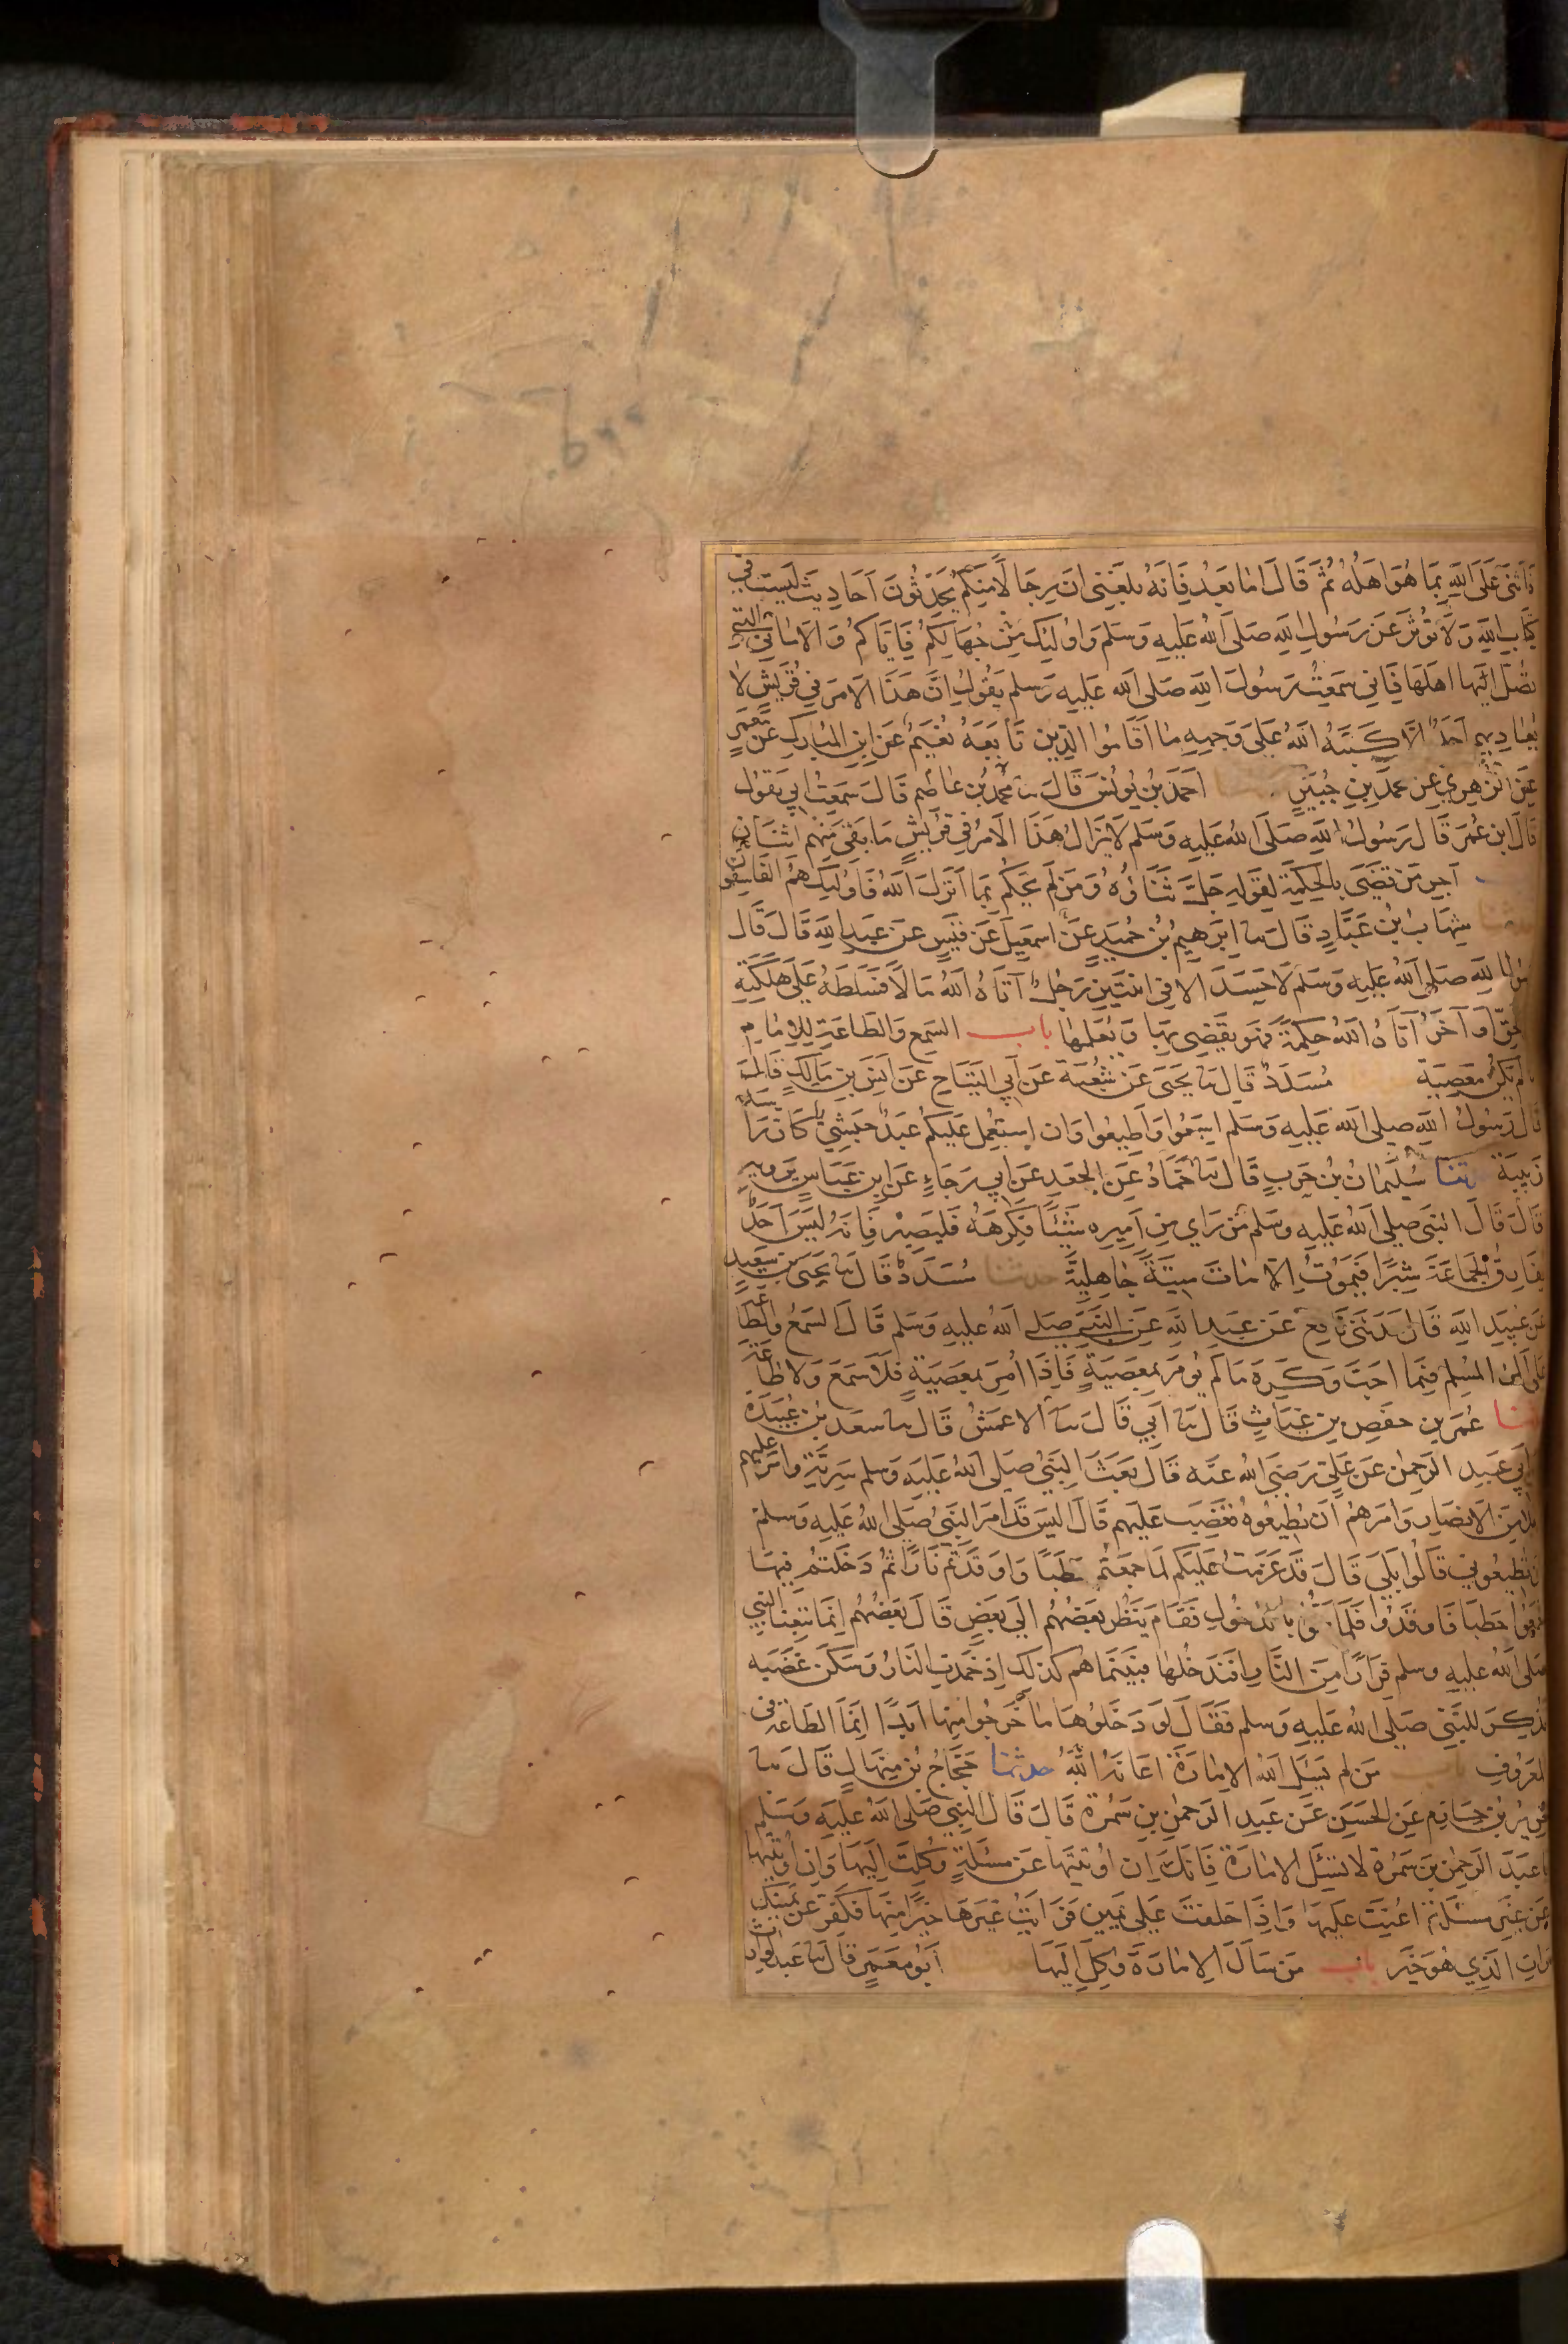 فَاَثنَى عَلَى اللهِ بِمَا هُوَ اهَلُهُ ثُمَّ قَالَ امَا بَعدُ فَاِنَهُ بلَغَنِى انَ رِجَالًا مِنَكُم يُحَدِّثُونَ اَحَادِيثَ لَيسَت فِي
كِتَابِ اللهِ وَلَا تُوثَرُ عَن رَسُولِ اللهِ صَلَى اللهُ عَلَيهِ وَسَلم وَاوُلَئِكَ مِن جُهَالِكُم فَاِيَاكُم وَالاَمَانِيَ التِي
تضِلُّ اَهلَهَا فَاِنِي سَمعِتُ رَسُولَ اللهِ صَلى الله عَليهِ وَسلم يَقُولُ اِنَّ هَذَا الاَمرَ فِي قُرَيشٍ لاَ
يُعَادِيهِم اَحَدٌ اِلَّا كَبَّهُ اللهُ عَلَى وَجهِهِ مَا اَقَامُوا الدِين تَابَعَهُ نُعَيمٌ عَنِ ابنِ المُبَاركِ عَن مَعمَرٍ
عَنِ الزُهرِيِ عَن محمَّدِ بنِ جُبَيرٍ احَمَدُ بنُ يُونُسَ قَالَ ثنا مُحمَّدُ بنُ عَاصِم قَالَ سَمِعَتُ ابِي يَقوُل
قَالَ ابن عُمَر قَال رَسُولُ اللهِ صَلَى اللهُ عَلَيهِ وَسَلم لَا يَزَالُ هَذَا الاَمرُ فِي قُرَيشٍ مَا بَقَى مِنهُم اثنَانِ
اَجرِ مَن قَضَى بِالحِكمَةِ لِقَولِهِ جَلَّ ثَنَاؤُهُ وَمَن لَم يَحكُم بِمَا اَنزَلَ اللهُ فَاُولَئِكَ هُمُ الفَاسِقُونَ
شِهَابُ بنُ عَبَّادٍ قَالَ ثنا ابرَهِيمُ بنُ حُمَيدٍ عَن اسمعِيلَ عَن قَيسٍ عَن عَبدِ اللهِ قَالَ قَالَ
رسُول اللهِ صَلى اللهُ عَلَيهِ وَسَلم لَا حَسَدَ الا فِي اثنَتَينِ رَجُلٌ آتَاهُ اللهُ مَالًا فَسَلطَهُ عَلَى هَلَكَتِهِ
فِي الحَقِّ وَآخَرُ آتَاهُ اللهُ حِكمَةً فَهُو يَقضِى بِهَا وَيُعَلمُهَا باب السَمعِ وَالطَاعَةِ لِلِامَامِ
مَا لَم تَكُن مَعصِيَةً مُسَدَدٌ قَالَ ثنا يَحيَى عَن شُعبَةَ عَن اَبِي التَيَاحِ عَن انَسِ بنِ مَالِكٍ قَالَ
قَال رَسُولُ اللهِ صلى الله عَلَيهِ وَسَلم اسمَعُوا وَاَطِيعُوا وَانِ استُعمِل عَلَيكُم عَبدٌ حَبَشِيٌ كَانَ رَاسَهُ
زَبِيبَة ثنا سُلَيمَانُ بنُ حَربٍ قَالَ ثنا حَمَّادٌ عَنِ الجَعدِ عَن ابِي رَجَاءٍ عَنِ ابنِ عَبَاسٍ يَروِيهِ
قَالَ قَالَ النبَي صلى اللهُ عَلَيهِ وسَلم مَن رَاي مِن اَمِيرِهِ شَيئًا فَكَرِهَهُ فَليَصبِر فَاِنَهُ لَيسَ اَحَدٌ
يُفَارِقُ الجَمَاعَةَ شِبرًا فَيَمُوتُ اِلّا مَاتَ مِيتَةً جَاهِلِيَّةً حدثنا مُسَدَدٌ قَالَ ثنا يَحيَى بن سَعِيدٍ
عَن عُبَيدِ اللهِ قَالَ حَدثَنِي نَافِعٌ عَن عَبدِ اللهِ عَن النَبِيِ صَلى اللهُ عليهِ وَسَلم قَالَ السَمعُ وَالطَاعَة
عَلَى المَرءِ المُسلِمِ فِيمَا احَبَ وَكَرِهَ مَا لَم يُومَر بِمَعصِيَةٍ فَاِذَا اُمِرَ بِمَعصِيَةٍ فَلَا سَمعَ وَلا طَاعَةَ
حدثنا عُمَر بن حَفصِ بنِ غِيَاثٍ قَالَ ثنا اَبِي قَالَ ثنا الاعمَشُ قَالَ ثنا سعَد بنُ عُبَيدَةَ
عَن اَبِي عَبدِ الرَحمنِ عَن عَلِيٍ رَضِيَ اللهُ عَنه قَالَ بَعَثَ النَبيُ صَلى اللهُ عَلَيهِ وَسلم سَرِيَّةً وامَّر عَليهِم
رَجُلًا مِنَ الاَنصَارِ وَامَرَهُم اَن يُطِيعُوهُ فَغَضِبَ عَلَيهِم قَالَ الَيسَ قَد امَرَ النَبيُ صَلى اللهُ عَلَيهِ وَسلم
اَن تُطِيعُونِي قَالُوا بَلَى قَالَ قَد عَزَمتُ عَلَيكُم لَما جمَعتُم حَطَبًا وَاوقَدتُم نَارًا ثُمَ دَخَلتُم فِيهَا
فَجَمَعُوا حَطبًا فَاوقَدُوا فَلَمَا هَمُّوا بِالدُخُولِ فَقَامَ يَنظُرُ بَعضُهُم الَى بَعضٍ قَالَ بَعضُهُم اِنَّمَا تَبِعنَا النَبِي
صَلى اللهُ عليهِ وسلم فِرَارًا مِنَ النَارِ افَنَدخُلُهَا فَبَينَمَا هُم كَذلِكَ اِذ خَمَدَتِ النَارُ وَسَكَنَ غَضَبُه
فَذُكِرَ للنَبِيِّ صَلى اللهُ عَلَيهِ وَسلم فَقَالَ لَو دَخَلُوهَا مَا خَرَجُوا مِنهَا ابَدًا اِنَّمَا الطَاعَةُ فِي
المَعرُوفِ باب مَن لَم يَسئَلِ اللهَ الاِمَارَةَ اعَانَهُ اللهُ حدثنا حَجَّاجُ بنُ مِنهَالٍ قَالَ ثنا
جَرِيرُ بنُ حَازِم عَنِ الحَسَنِ عَن عَبدِ الرَحمنِ بنِ سَمُرَة قَالَ قَالَ النَبِي صَلى اللهُ عليهِ وَسَلم
يا عبَدَ الرَحمنِ بنَ سَمُرَة لا تَسئَلِ الاِمَارَةَ فَاِنَكَ اِن اُوتِيتَهَا عَن مَسئَلَةٍ وُكِلتَ اِلَيهَا وَاِن اُوتِيتَهَا
عَن غَيرِ مسَئَلَةٍ اُعِنتَ عَلَيهَا وَاِذَا حَلَفتَ عَلَى يَمِينٍ فَرَايتَ غَيرَهَا خَيرًا مِنهَا فَكَفِّر عَن يَمِينِكَ
وَاتِ الذِي هُوَ خَيرٌ باب مَن سَاَلَ الاِمَارَةَ وُكِلَ اِلَيهَا اَبُو مَعمَرٍ قَالَ ثنا عَبدُ الوارث